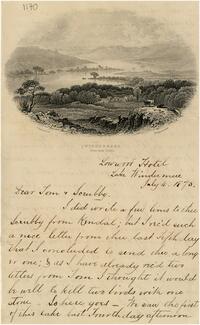 1170
WINDERMERE
Lowood Hotel
Lake Windermere
July 4. 1873.
Dear Tom & Scrubby.
I did write a few lines to thee
Scrubby from Kendal; but I rec'd such
a nice letter from thee last 5th day
that I concluded to send thee a long-
er one; & as I have already rec'd two
letters from Tom I thought it would
be well to kill two birds with one
stone - So here goes - We saw the first
of this lake last Fourth day afternoon